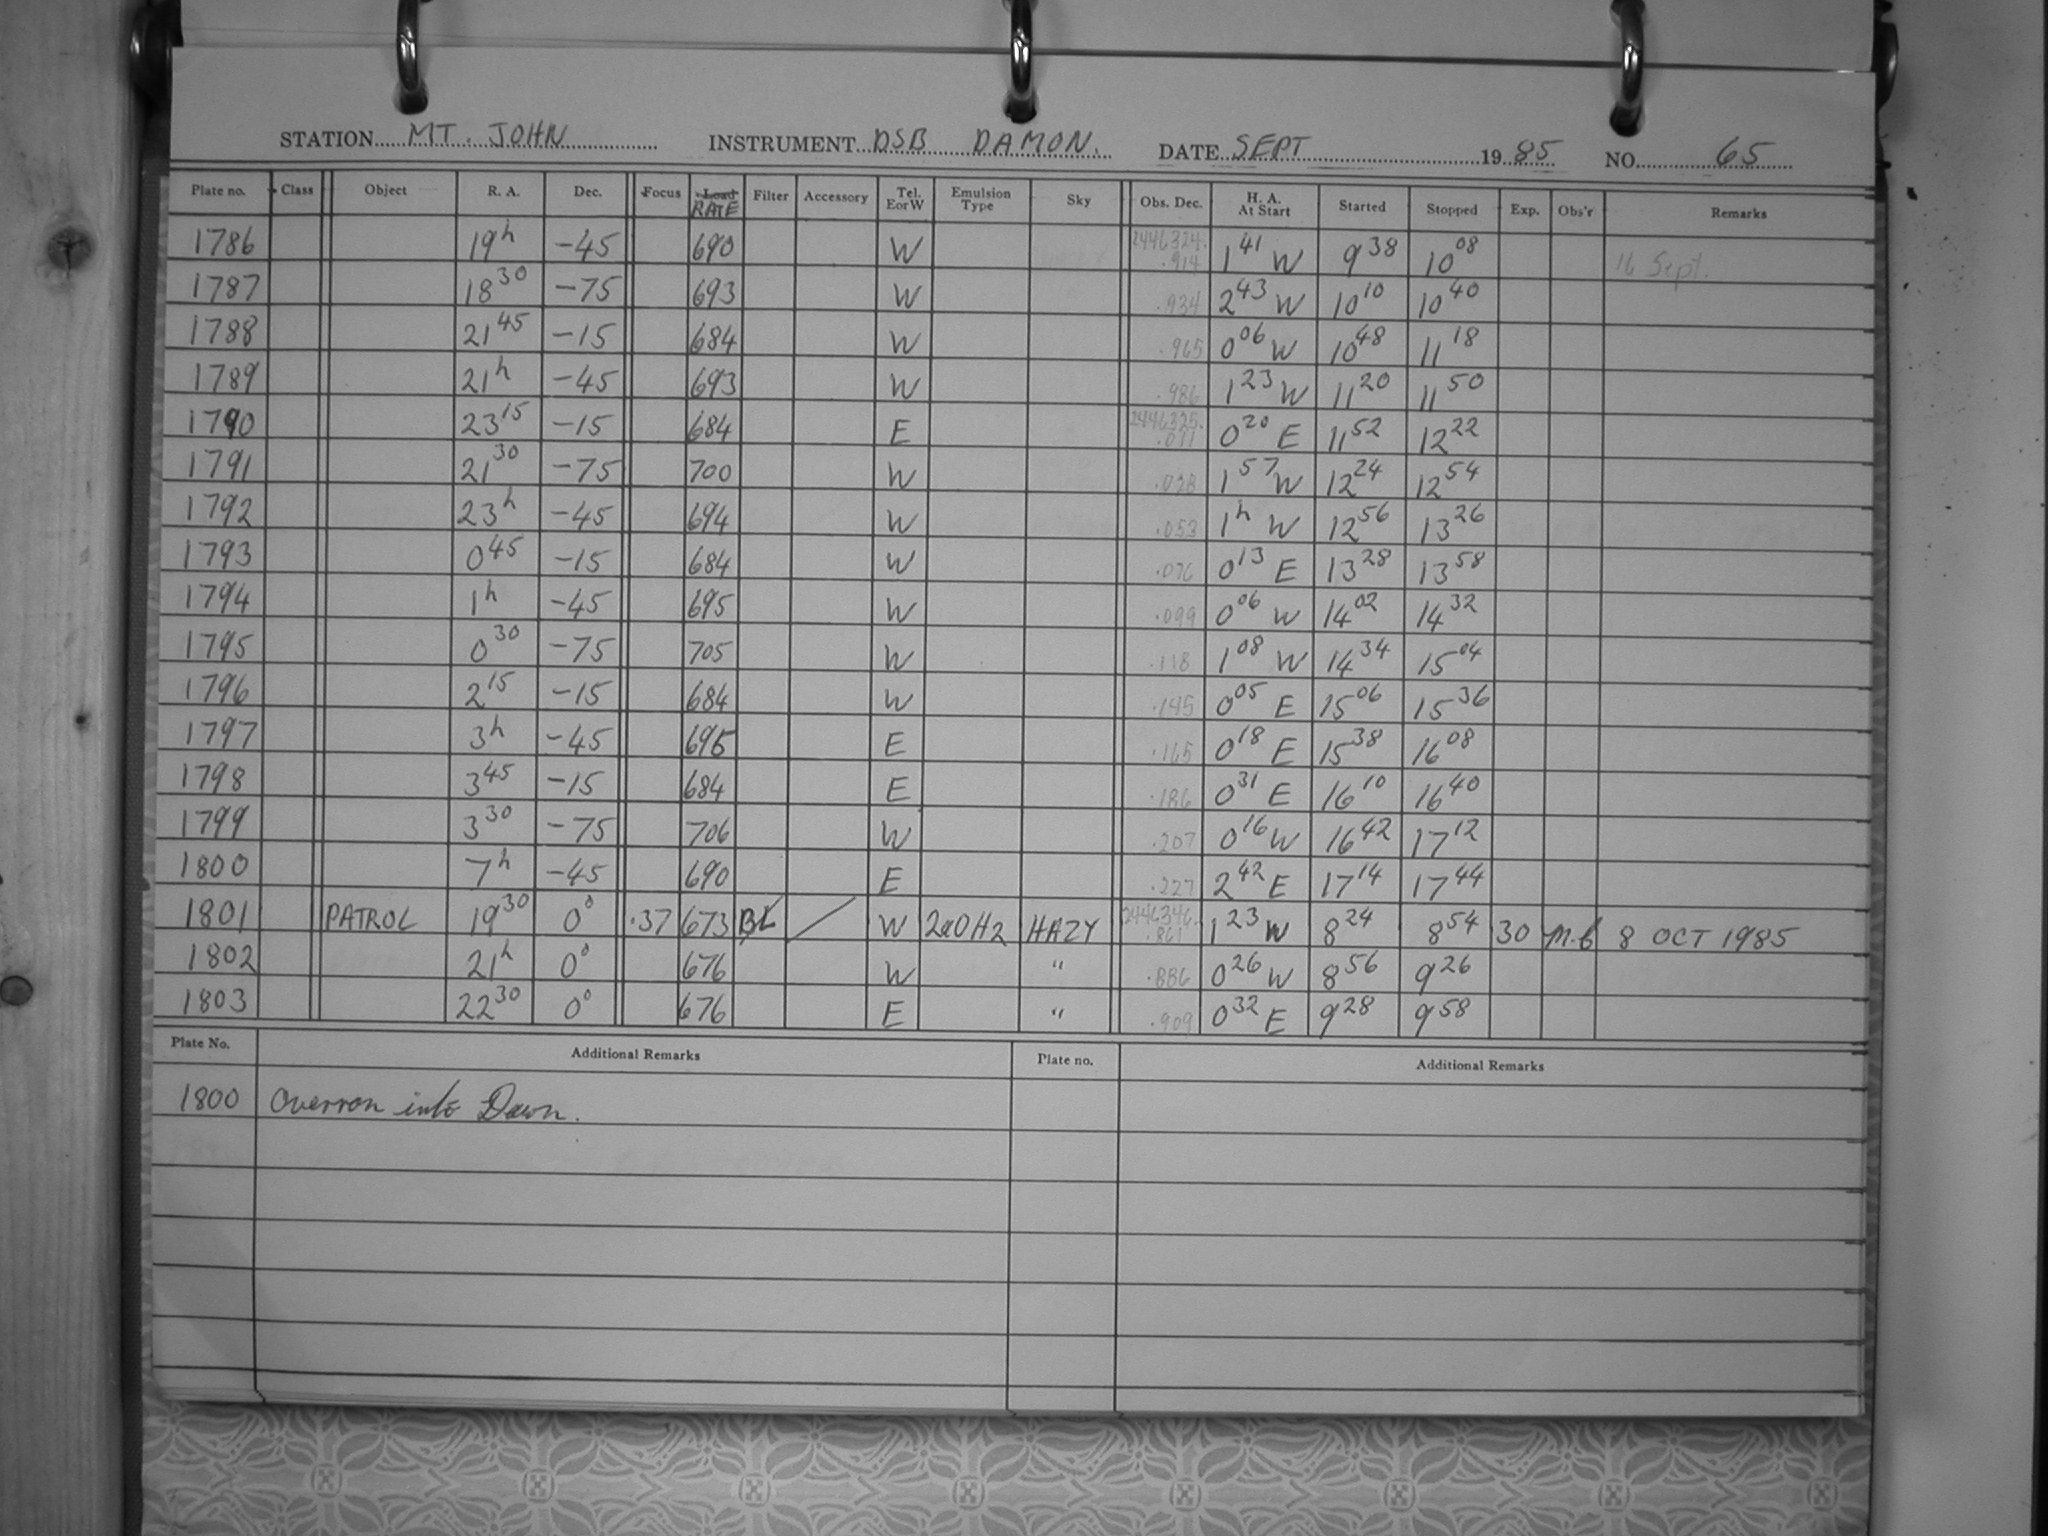 STATION MT. JOHN INSTRUMENT DSB DAMON. DATE SEPT 19 85 NO. 65
Plate no. Class Object R. A. Dec. Focus Load RATE Filter Accessory Tel. E or W Emulsion Type Sky Obs. Dec. H. A. At Start Started Stopped Exp. Obs'r Remarks
1786 19h -45 690 W 2446324. .914 1 41 W 9 38 10 08 16 Sept.
1787 18 30 -75 693 W .934 2 43 W 10 10 10 40
1788 21 45 -15 684 W .965 0 06 W 10 48 11 18
1789 21h -45 693 W .986 1 23 W 11 20 11 50
1790 23 15 -15 684 E 2446325. .011 0 20 E 11 52 12 22
1791 21 30 -75 700 W .028 1 57 W 12 24 12 54
1792 23h -45 694 W .053 1h W 12 56 13 26
1793 0 45 -15 684 W .076 0 13 E 13 28 13 58
1794 1h -45 695 W .099 0 06 W 14 02 14 32
1795 0 30 -75 705 W .118 1 08 W 14 34 15 04
1796 2 15 -15 684 W .145 0 05 E 15 06 15 36
1797 3h -45 695 E .165 0 18 E 15 38 16 08
1798 3 45 -15 684 E .186 0 31 E 16 10 16 40
1799 3 30 -75 706 W .207 0 16 W 16 42 17 12
1800 7h -45 690 E .227 2 42 E 17 14 17 44
1801 PATROL 19 30 0° .37 673 BL / W 2a0H2 HAZY 2446346. .861 1 23 W 8 24 8 54 30 8 OCT 1985
1802 21h 0° 676 W " .886 0 26 W 8 56 9 26
1803 22 30 0° 676 E " .909 0 32 E 9 28 9 58
Plate No. Additional Remarks Plate no. Additional Remarks
1800 Overron into Dawn.